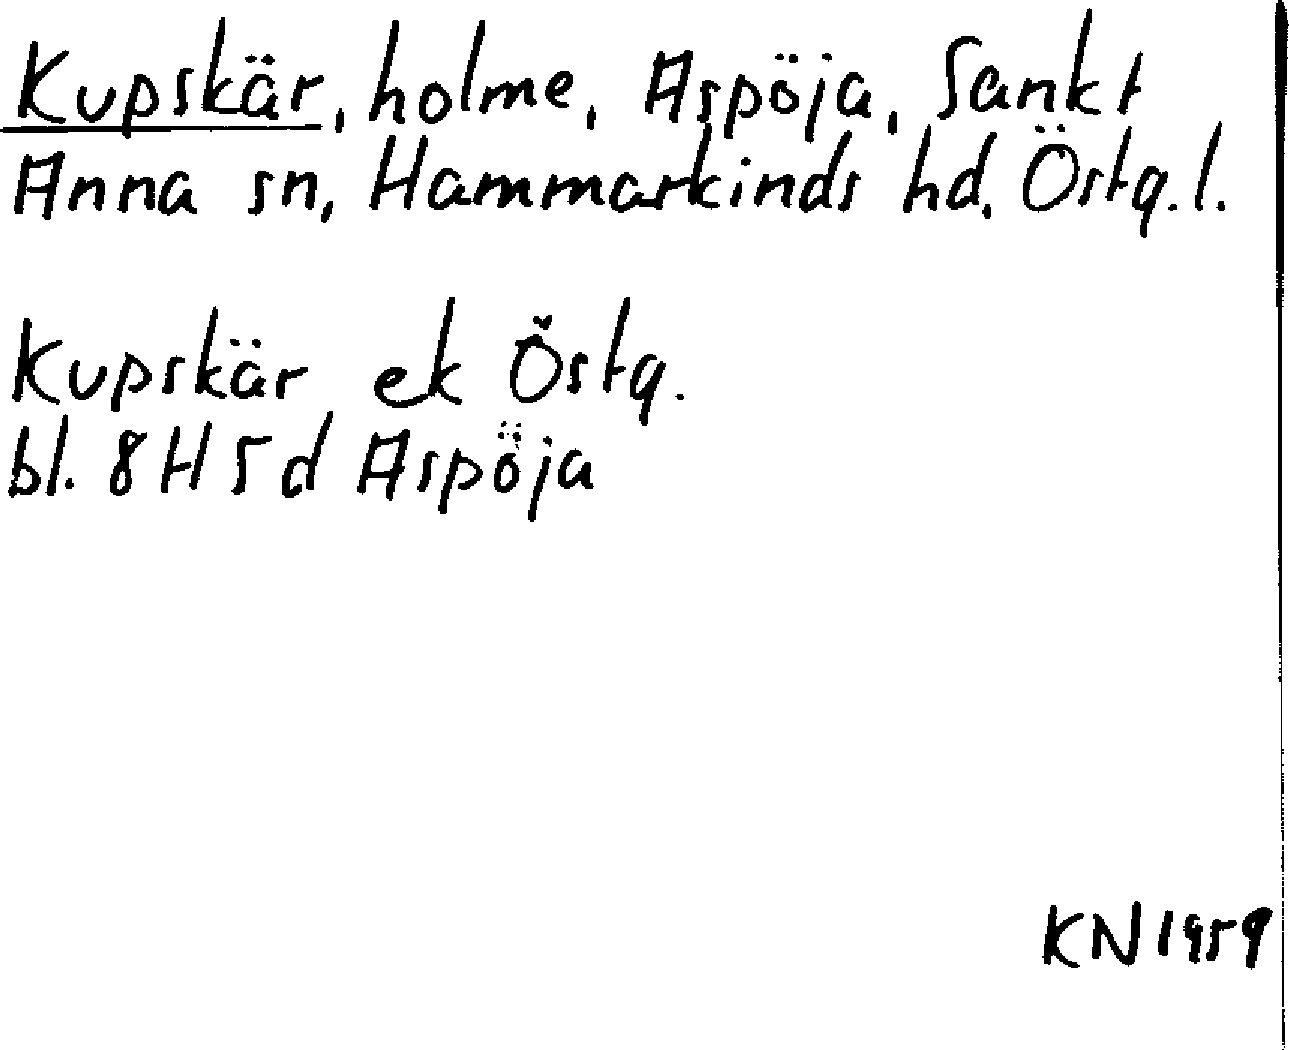 Kupskär, holme, Aspöja, Sankt
Anna sn, Hammarkinds hd, Östg.l.
Kupskär ek Östg.
bl. 8H5d Aspöja
KN 1959